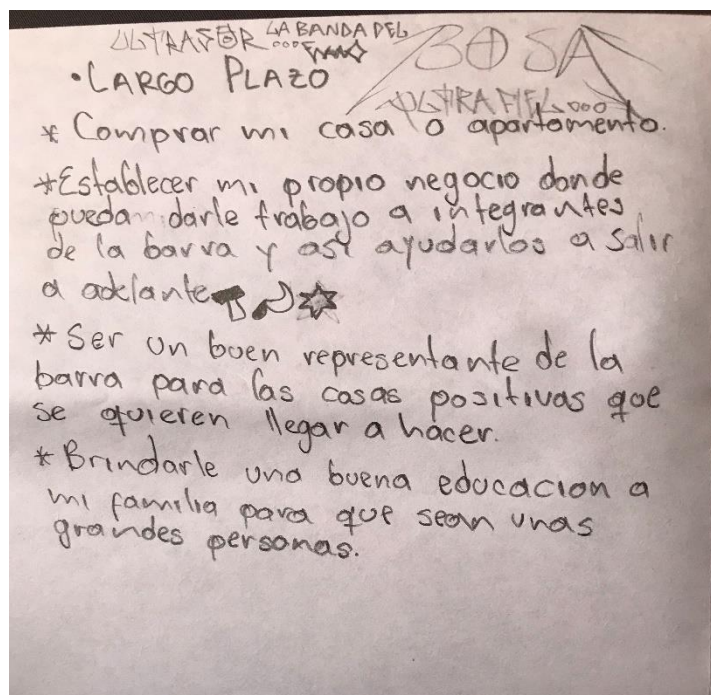 LA BANDA DEL
BOSA
• LARGO PLAZO
* Comprar mi casa o apartamento.
*Establecer mi propio negocio donde
pueda darle trabajo a integrantes
de la barra y así ayudarlos a salir
a adelante
* Ser un buen representante de la
barra para las casas positivas que
se quieren llegar a hacer.
* Brindarle una buena educacion a
mi familia para que sean unas
grandes personas.